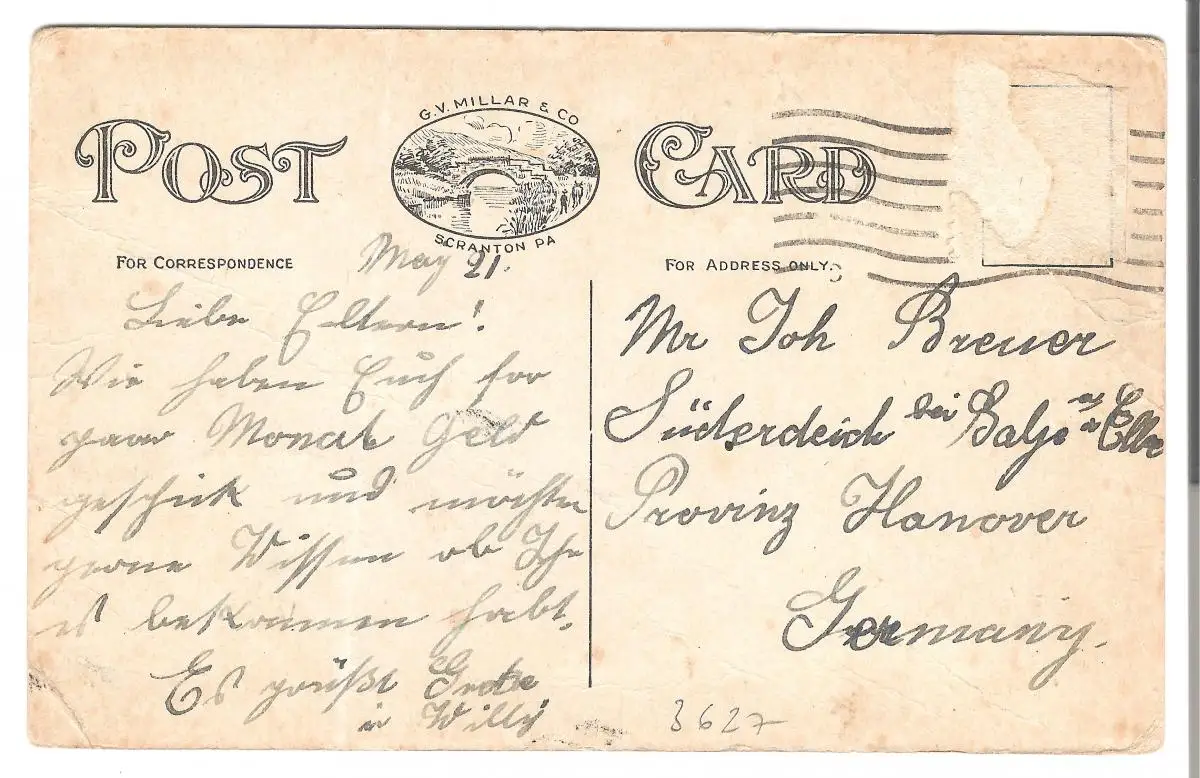 G.V. MILLAR & CO
POST CARD
SCRANTON PA
FOR CORRESPONDENCE
FOR ADDRESS ONLY.
May 21.
Liebe Eltern!
Wie haben Euch for
paar Monat Geld
geschick und möchten
gerne Wissen ob Ihr
es bekommen habt.
Es grüßt Grete
u Willy
Mr Joh Breuer
Süderdeich bei Balje a Elbe
Provinz Hanover
Germany.
3627